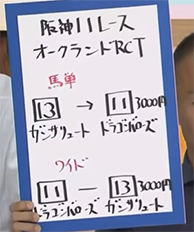 阪神11レース
オークランドRCT
馬単
13 → 11 3000円
ガンサリュート ドラゴンバローズ
ワイド
11 — 13 3000円
ドラゴンバローズ ガンサリュート